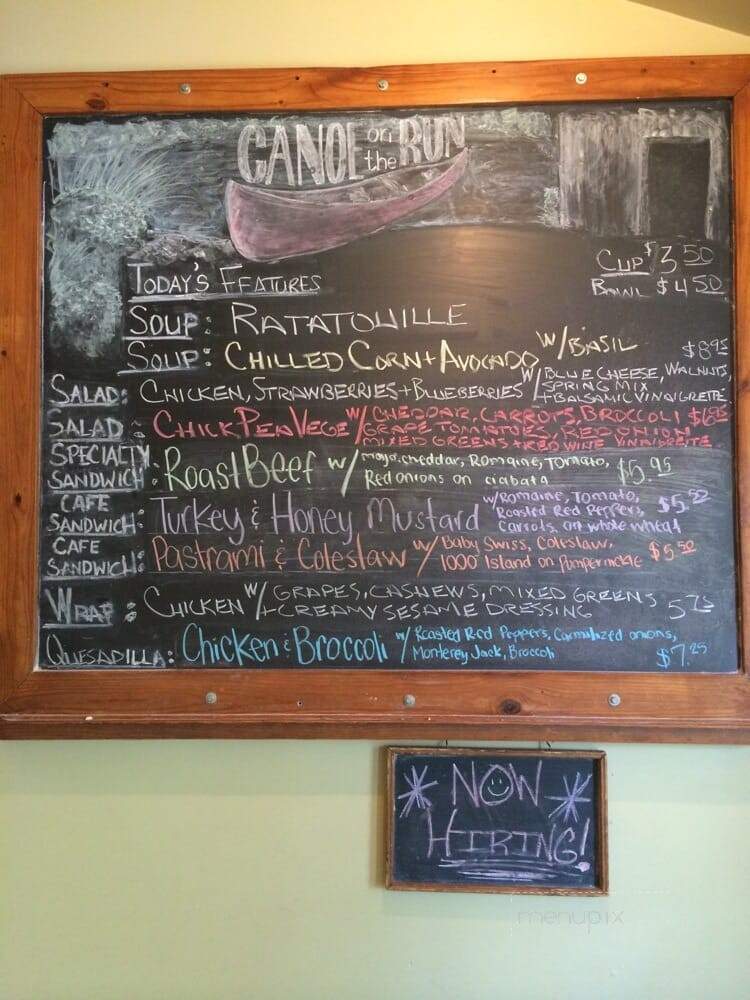 CANOE on the RUN
TODAY'S FEATURES
CUP $3.50
BOWL $4.50
SOUP: RATATOUILLE
SOUP: CHILLED CORN + AVOCADO W/ BASIL
SALAD: CHICKEN, STRAWBERRIES + BLUEBERRIES W/ BLUE CHEESE, WALNUTS, $8.95
SPRING MIX
+ BALSAMIC VINAIGRETTE
SALAD: CHICK PEA VEGE W/ CHEDDAR, CARROTS, BROCCOLI
GRAPE TOMATOES, RED ONION
MIXED GREENS + RED WINE VINAIGRETTE
SPECIALTY
SANDWICH: Roast Beef w/ mayo, cheddar, Romaine, Tomato, $5.95
Red onions on ciabata
CAFE
SANDWICH: Turkey & Honey Mustard w/ Romaine, Tomato,
Roasted Red Peppers,
Carrots, on whole wheat
CAFE
SANDWICH: Pastrami & Coleslaw w/ Baby Swiss, Coleslaw, $5.50
1000 Island on Pumpernickle
WRAP: CHICKEN W/ GRAPES, CASHEWS, MIXED GREENS 5.75
+ CREAMY SESAME DRESSING
QUESADILLA: Chicken & Broccoli w/ Roasted Red Peppers, Carmalized onions,
Monterey Jack, Broccoli $7.25
NOW
HIRING!
menupix